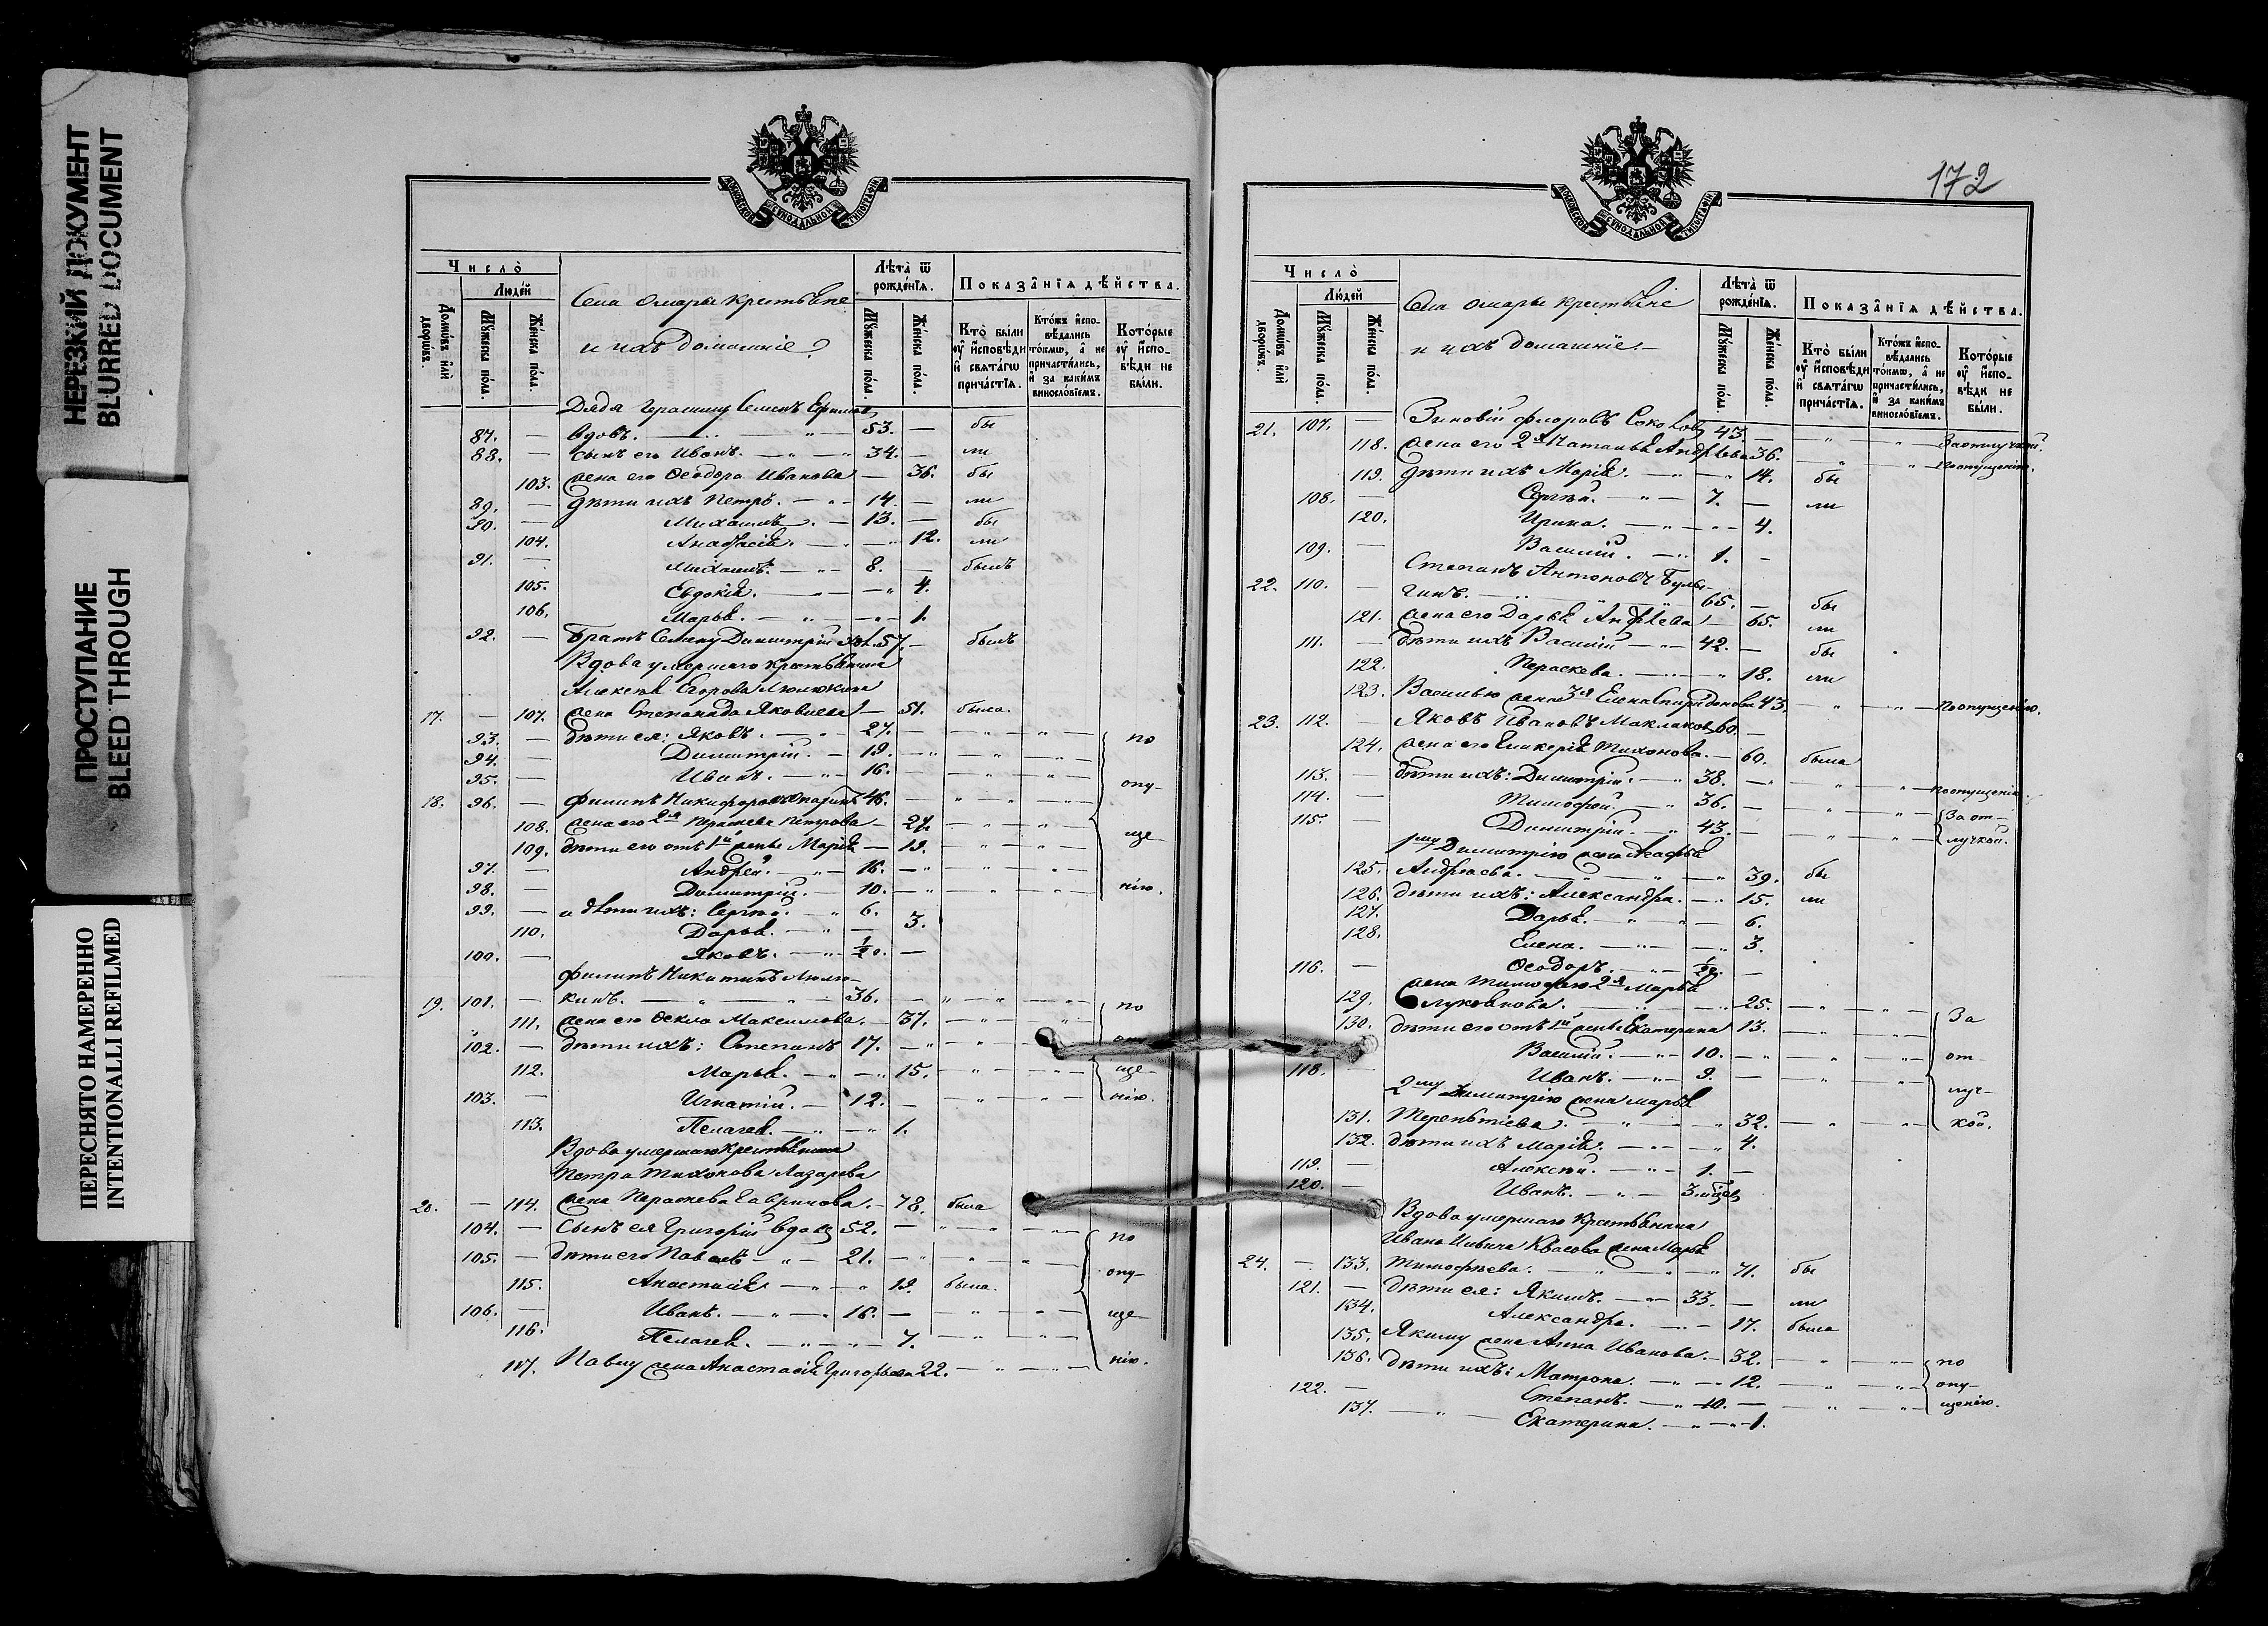 НЕРЕЗКИЙ ДОКУМЕНТ
BLURRED DOCUMENT
ПРОСТУПАНИЕ
BLEED THROUGH
ПЕРЕСНЯТО НАМЕРЕННО
INTENTIONALLI REFILMED
МОСКОВСКОЙ СѴНОДАЛЬНОЙ ТИПОГРАФІИ
Число̀
Люде́й
Домѡ́въ и҆лѝ дворѡ́въ.
Мꙋ́жеска по́ла.
Же́нска по́ла.
Села Омары крестьяне
и ихъ домашніе
Лѣта̀ ѿ рожде́нїѧ.
Мꙋ́жеска по́ла.
Же́нска по́ла.
Показа̑нїѧ дѣ́йства.
Кто̀ бы́ли оу҆ и҆́сповѣди и҆ свѧта́гѡ прича́стїѧ.
Кто́жъ и҆спо-
вѣ́дались
то́кмѡ, а҆ не
причасти́лись,
и҆ за каки́мъ
винослові́емъ.
Кото́рые
оу҆ и҆спо-
вѣди не
бы́ли.
Дядя Герасиму Семенъ
87. — вдовъ. — 53. — бы
88. — сынъ его Иванъ. — 34. — ли
103. жена его Ѳеодора Иванова — 36. бы
89. — дѣти ихъ Петръ. — 14. — ли
90. — Михаилъ. — 13. — бы
104. Анастасія. — 12. ли
91. — Михаилъ. — 8. — былъ
105. Евдокія. — 4.
106. Марья. — 1.
92. — Братъ Семену Димитрій 57. — былъ
Вдова умершаго крестьянина
Алексѣя Егорова Люлюкина
17. — 107. жена Степанида Яковлева — 51. была.
93. — дѣти ея: Яковъ. — 27. — по
94. — Димитрій. — 19. —
95. — Иванъ. — 16. — опу-
18. 96. — Филипъ Никифоровъ 46. —
108. жена его 2я Параскева Петрова — 27. ще-
109. дѣти его отъ 1й жены Марія — 19.
97. — Андрей. — 16. —
98. — Димитрій. — 10. — нію.
99. — и дѣти ихъ: Сергѣй. — 6.
110. Дарья. — 3.
100. — Яковъ. — ½ —
Филипъ Никитинъ Люлю-
19. 101. — кинъ. — 36. — по
111. жена его Ѳекла Максимова. — 37. —
102. — дѣти ихъ: Степанъ 17. — опу-
112. Марья. — 15. — ще-
103. — Игнатій. — 12. — нію.
113. Пелагея. — 1.
Вдова умершаго крестьянина
Петра Тихонова Лазарева
20. — 114. жена Параскева Гаврилова. — 78. была
104. — Сынъ ея Григорій вдовъ 52. — по
105. — дѣти его Павелъ — 21. — опу-
115. Анастасія — 19. была.
106. — Иванъ. — 16. — ще-
116. Пелагея. — 7. —
117. Павлу жена Анастасія Григорьева 22. — нію.
172
МОСКОВСКОЙ СѴНОДАЛЬНОЙ ТИПОГРАФІИ
Число̀
Люде́й
Домѡ́въ и҆лѝ дворѡ́въ.
Мꙋ́жеска по́ла.
Же́нска по́ла.
Села Омары крестьяне
и ихъ домашніе.
Лѣта̀ ѿ рожде́нїѧ.
Мꙋ́жеска по́ла.
Же́нска по́ла.
Показа̑нїѧ дѣ́йства.
Кто̀ бы́ли оу҆ и҆́сповѣди и҆ свѧта́гѡ прича́стїѧ.
Кто́жъ и҆спо-
вѣ́дались
то́кмѡ, а҆ не
причасти́лись,
и҆ за каки́мъ
винослові́емъ.
Кото́рые
оу҆ и҆спо-
вѣди не
бы́ли.
21. 107. — Зиновій Флоровъ Соколовъ 43. — За отлучкой.
118. жена его 2я Наталья Андреева 36. — по опущенію.
119. дѣти ихъ Марія. — 14. бы
108. — Сергѣй. — 7. — ли
120. Ирина. — 4.
109. — Василій. — 1. —
Степанъ Антоновъ Булы-
22. 110. — гинъ. — 65. — бы
121. жена его Дарья Андреева — 65. ли
111. — дѣти ихъ Василій — 42. — бы
122. Параскева. — 18. ли
123. Василью жена 3я Елена Спиридонова 43. — по опущенію.
23. 112. — Яковъ Ивановъ Маклаковъ 60. —
124. жена его Гликерія Тихонова. — 60. была
113. — дѣти ихъ: Димитрій. — 38. — по опущенію.
114. — Тимофей. — 36. — За от-
115. — Димитрій. — 43. — лучкой.
1му Димитрію жена Агафья
125. Андреева. — 39. бы
126. дѣти ихъ: Александра. — 15. ли
127. Дарья. — 6.
128. Елена. — 3.
116. — Ѳеодоръ. — ½ —
жена Тимофею 2я Марья
129. Лукоянова. — 25. — За
130. дѣти его отъ 1й жены Екатерина 13. —
Василій. — 10. — от-
118. — Иванъ. — 9. —
2му Димитрію жена Марья луч-
131. Терентіева. — 32. — кой.
132. дѣти ихъ Марія. — 4.
119. — Алексѣй. — 1. —
120. — Иванъ. — 3 мѣсяц
Вдова умершаго крестьянина
Ивана Ильича Квасова жена Марья
24. — 133. Тимофѣева. — 71. бы
121. — дѣти ея: Якимъ. — 33. — ли
134. Александра. — 17. была
135. Якиму жена Анна Иванова. — 32. — по
136. дѣти ихъ: Матрона. — 12. — опу-
122. — Степанъ. — 10. — щенію.
137. — Екатерина. — 1.